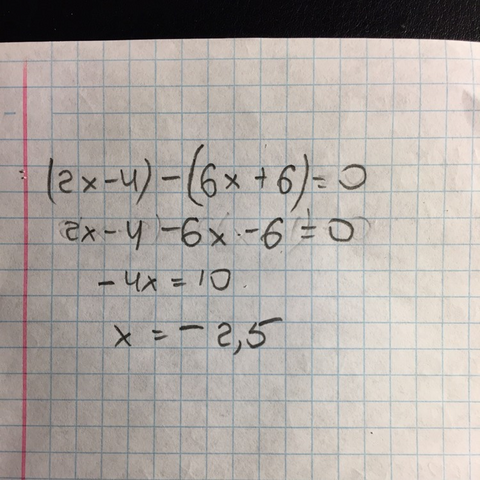 (2x-4)-(6x+6)=0
2x-4-6x-6=0
-4x=10
x=-2,5